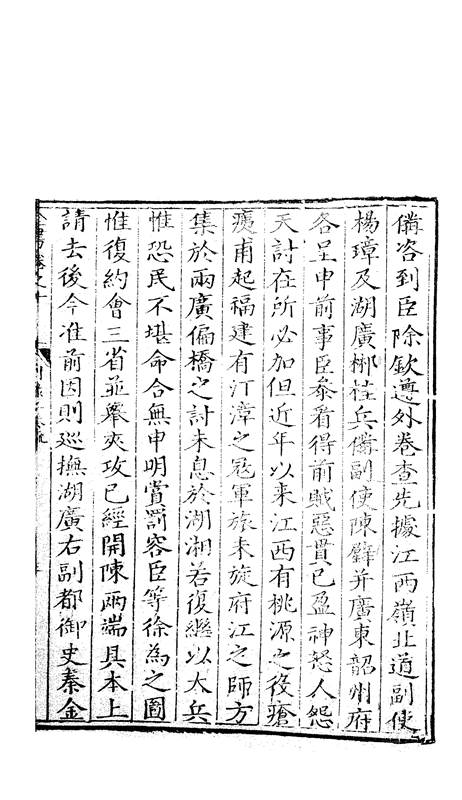 備咨到臣除欽遵外卷查先據江西嶺北道副使
楊璋及湖廣郴桂兵備副使陳璧并廣東韶州府
各呈申前事臣叅看得前賊惡貫已盈神怒人怨
天討在所必加但近年以来江西有桃源之役瘡
痍甫起福建有汀漳之冦軍旅未旋府江之師方
集於兩廣偏橋之討未息於湖湘若復繼以大兵
惟恐民不堪命合無申明賞罰容臣等徐為之圖
惟復約會三省並舉夾攻已經開陳兩端具本上
請去後今准前因則廵撫湖廣右副都御史秦金